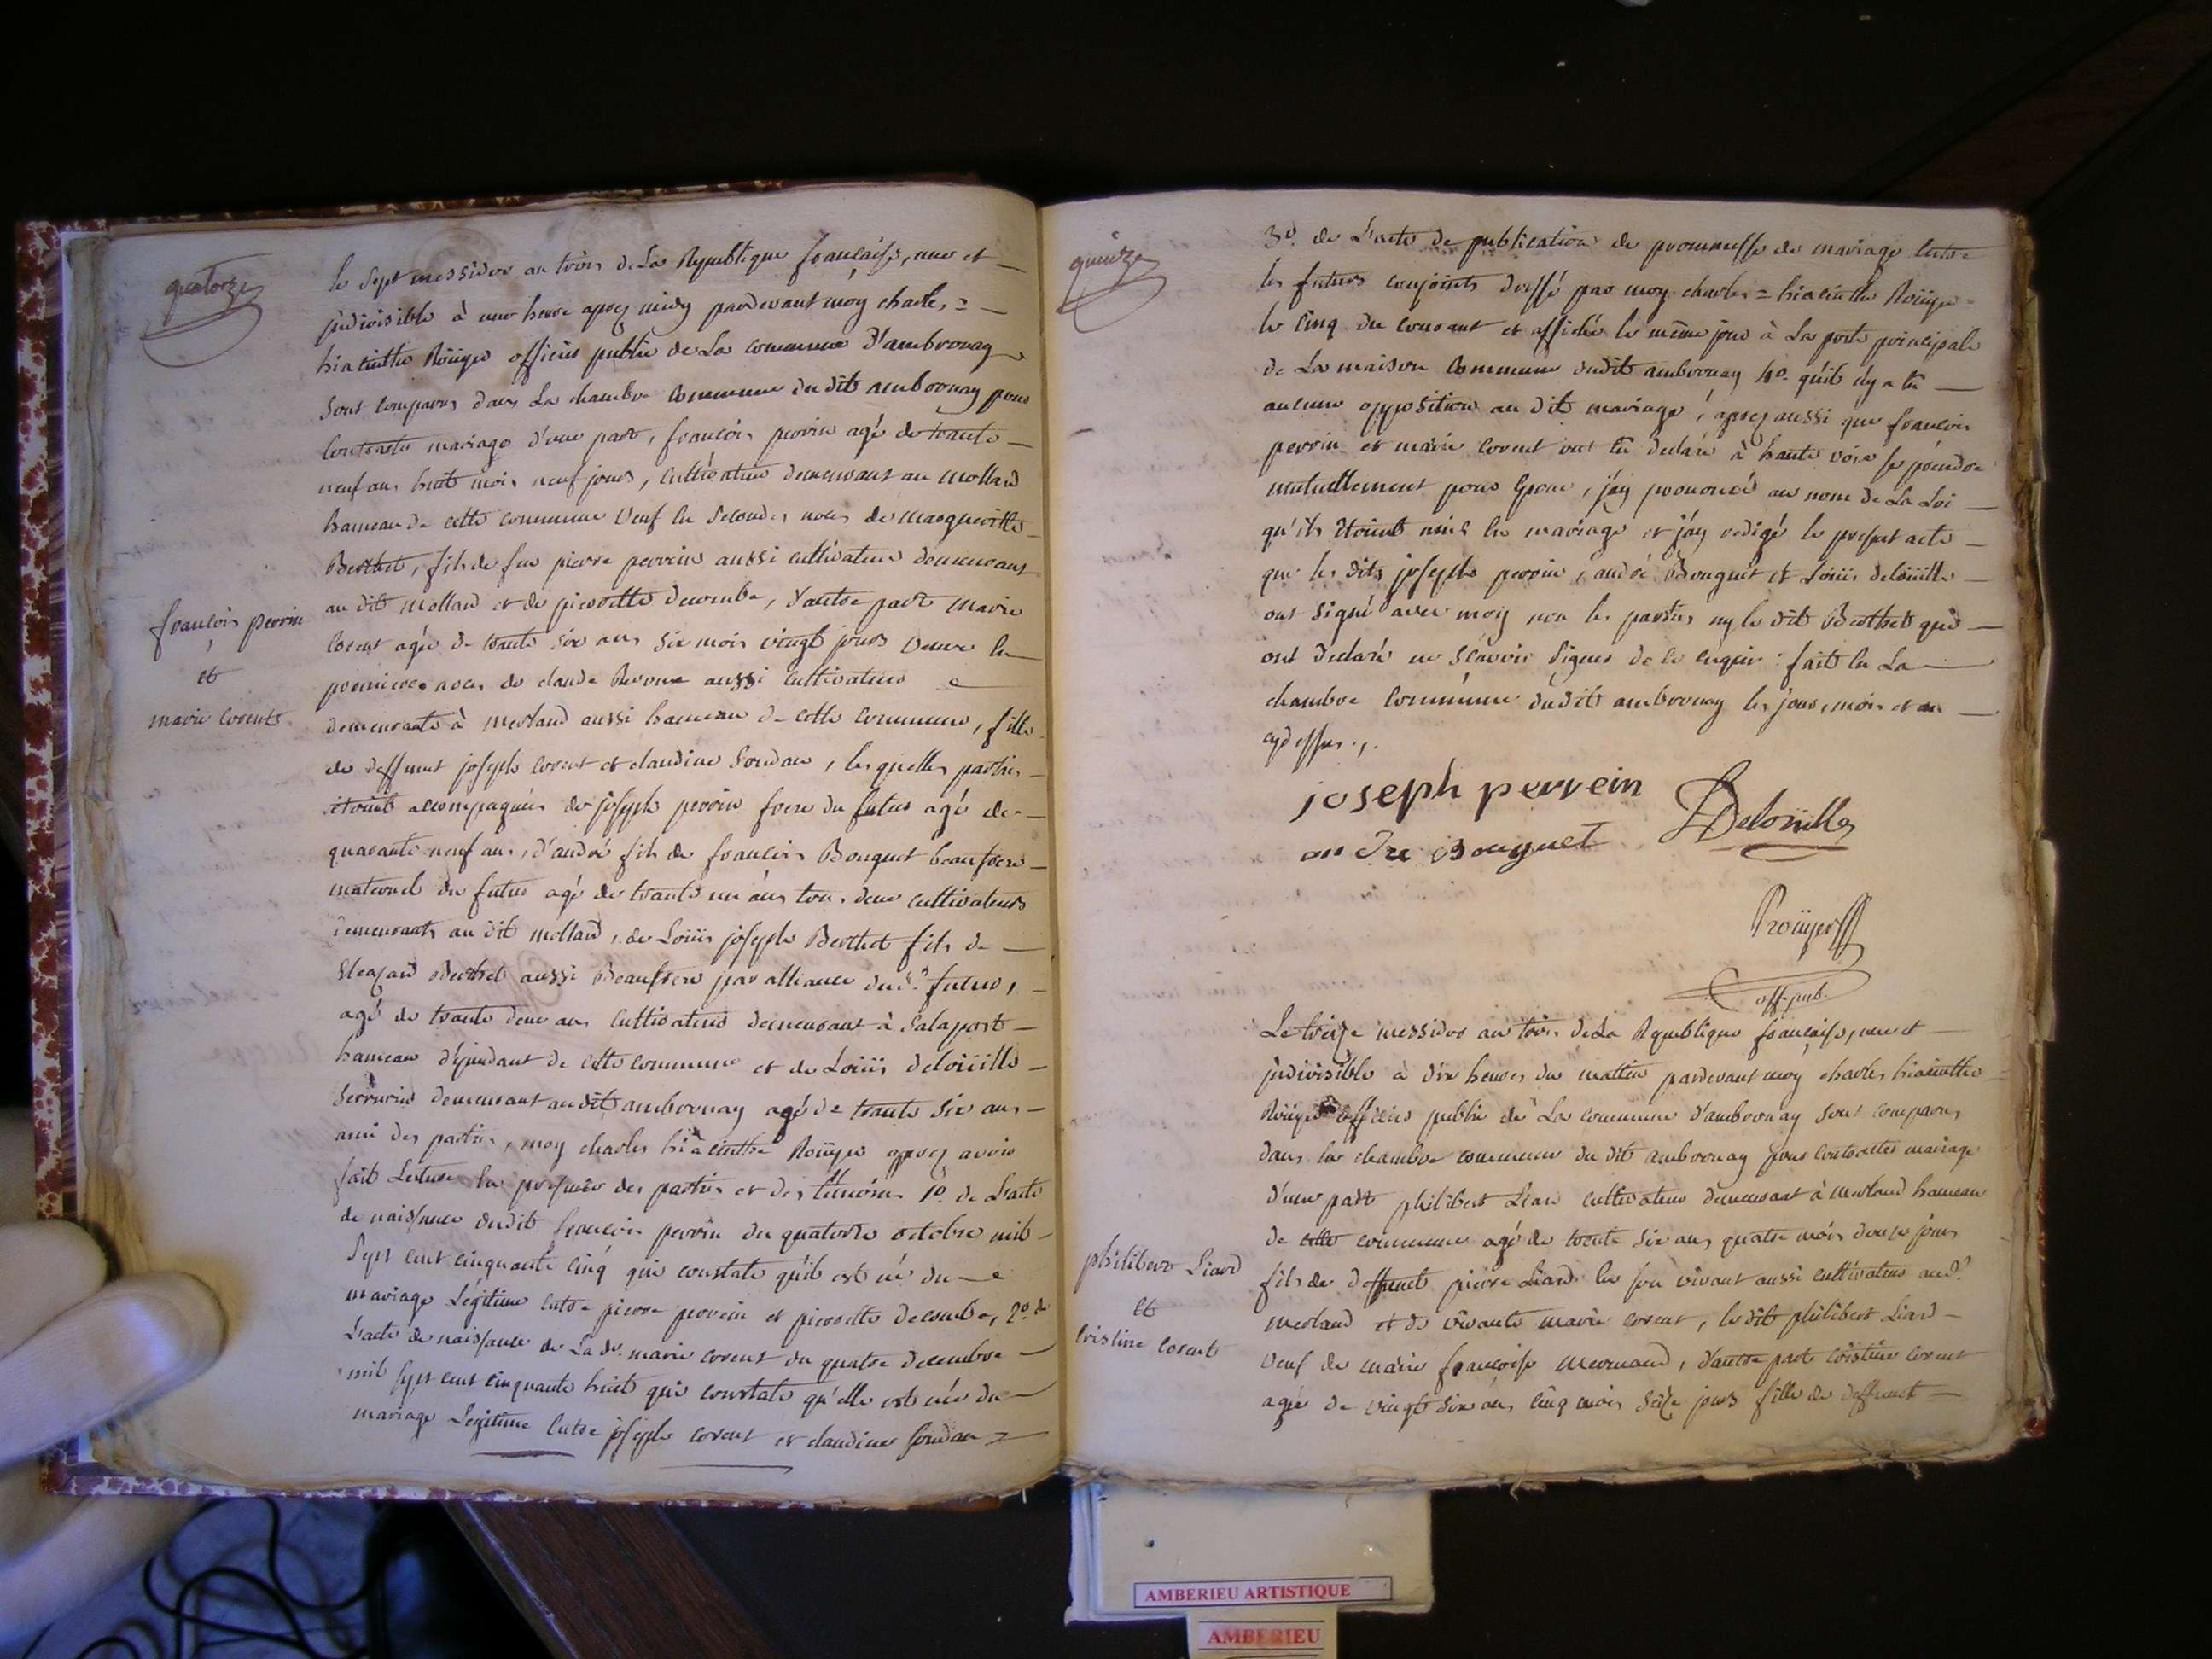 quatorze
le sept messidor an trois de La Republique francaise, une et
jndivisible à une heure aprez midy pardevant moy charles =
hiacinthe Roüyer officier public de La commune d'ambronay
sont comparus dans La chambre commune du dit ambronay pour
contracter mariage d'une part, francois perrin agé de trante
neuf ans huit mois neuf jours, cultivateur demeurant au mollard
hameau de cette commune veuf en secondes noces de
Berthet, fils de feu pierre perrein aussi cultivateur demeurant
au dit mollard et de pierrette decombe, d'autre part marie
francois perrin
et
marie corent
corent agée de trante six ans six mois vingt jours veuve en
premiere noces de claude aussi cultivateur
demeurante à merland aussi hameau de cette commune, fille
de deffunt joseph corent et claudine soudan, les quelles parties
etoint accompagnées de joseph perrin frere du futur agé de
quarante neuf ans, d'andré fils de francois Bouguet beaufrere
maternel du futur agé de trante un ans tous deux cultivateurs
demeurants au dit mollard, de Loüis joseph Berthet fils de
Berthet aussi Beaufrere par alliance dud.t futur,
agé de trante deux ans cultivateur demeurant à Salaport
hameau dépendant de cette commune et de Loüis deloüille
serrurier demeurant audit ambronay agé de trante six ans
ami des parties, moy charles hiacinthe Roüyer aprez avoir
fait Lecture en presence des parties et des temoins 1º. de L'acte
de naissance dudit francois perrin du quatorze octobre mil
sept cent cinquante cinq qui constate qu'il est né du
mariage Légitime entre pierre perrein et pierrette decombe, 2º. de
L'acte de naissance de La de. marie corent du quatre decembre
mil sept cent cinquante huit qui constate qu'elle est née du
mariage Legitime entre joseph corent et claudine soudan
quinze
3º. de L'acte de publication de prommesse de mariage entre
les futurs conjoints dressé par moy charles = hiacinthe Roüyer
le cinq du courant et affiché le même jour à La porte principale
de La maison commune dudit ambronay 4º. qu'il n'y a eu
aucune opposition au dit mariage, aprez aussi que francois
perrin et marie corent ont eu declaré à haute voix se prendre
mutuellement pour Epoux, j'ay prononcé au nom de La Loi
qu'ils etoint unis en mariage et j'ay redigé le present acte
que les dits joseph perrin, andré Bouguet et Loüis deloüille
ont signé avec moy non les parties ny le dit Berthet qui
ont declaré ne scavoir signer de ce enquis : fait en La
chambre commune dudit ambronay les jour, mois et an
cydessus ./.
joseph perrein
LDeloüille
andre Bouguet
Roüyer
off. pub.
Le treize messidor an trois de La Republique francaise, une et
jndivisible à dix heures du mattin pardevant moy charles hiacinthe
Roüyer officier public de La commune d'ambronay sont comparus
dans la chambre commune du dit ambronay pour contracter mariage
d'une part philibert Liard cultivateur demeurant à merland hameau
de cette commune agé de trente six ans quatre mois douze jours
philibert Liard
et
Cristine Corent
fils de deffunt pierre Liard en son vivant aussi cultivateur aud.t
merland et de vivante marie corent, le dit philibert Liard
veuf de marie francoise mermand, d'autre part cristine corent
agée de vingt six ans cinq mois seize jours fille de deffunt
AMBERIEU ARTISTIQUE
AMBERIEU